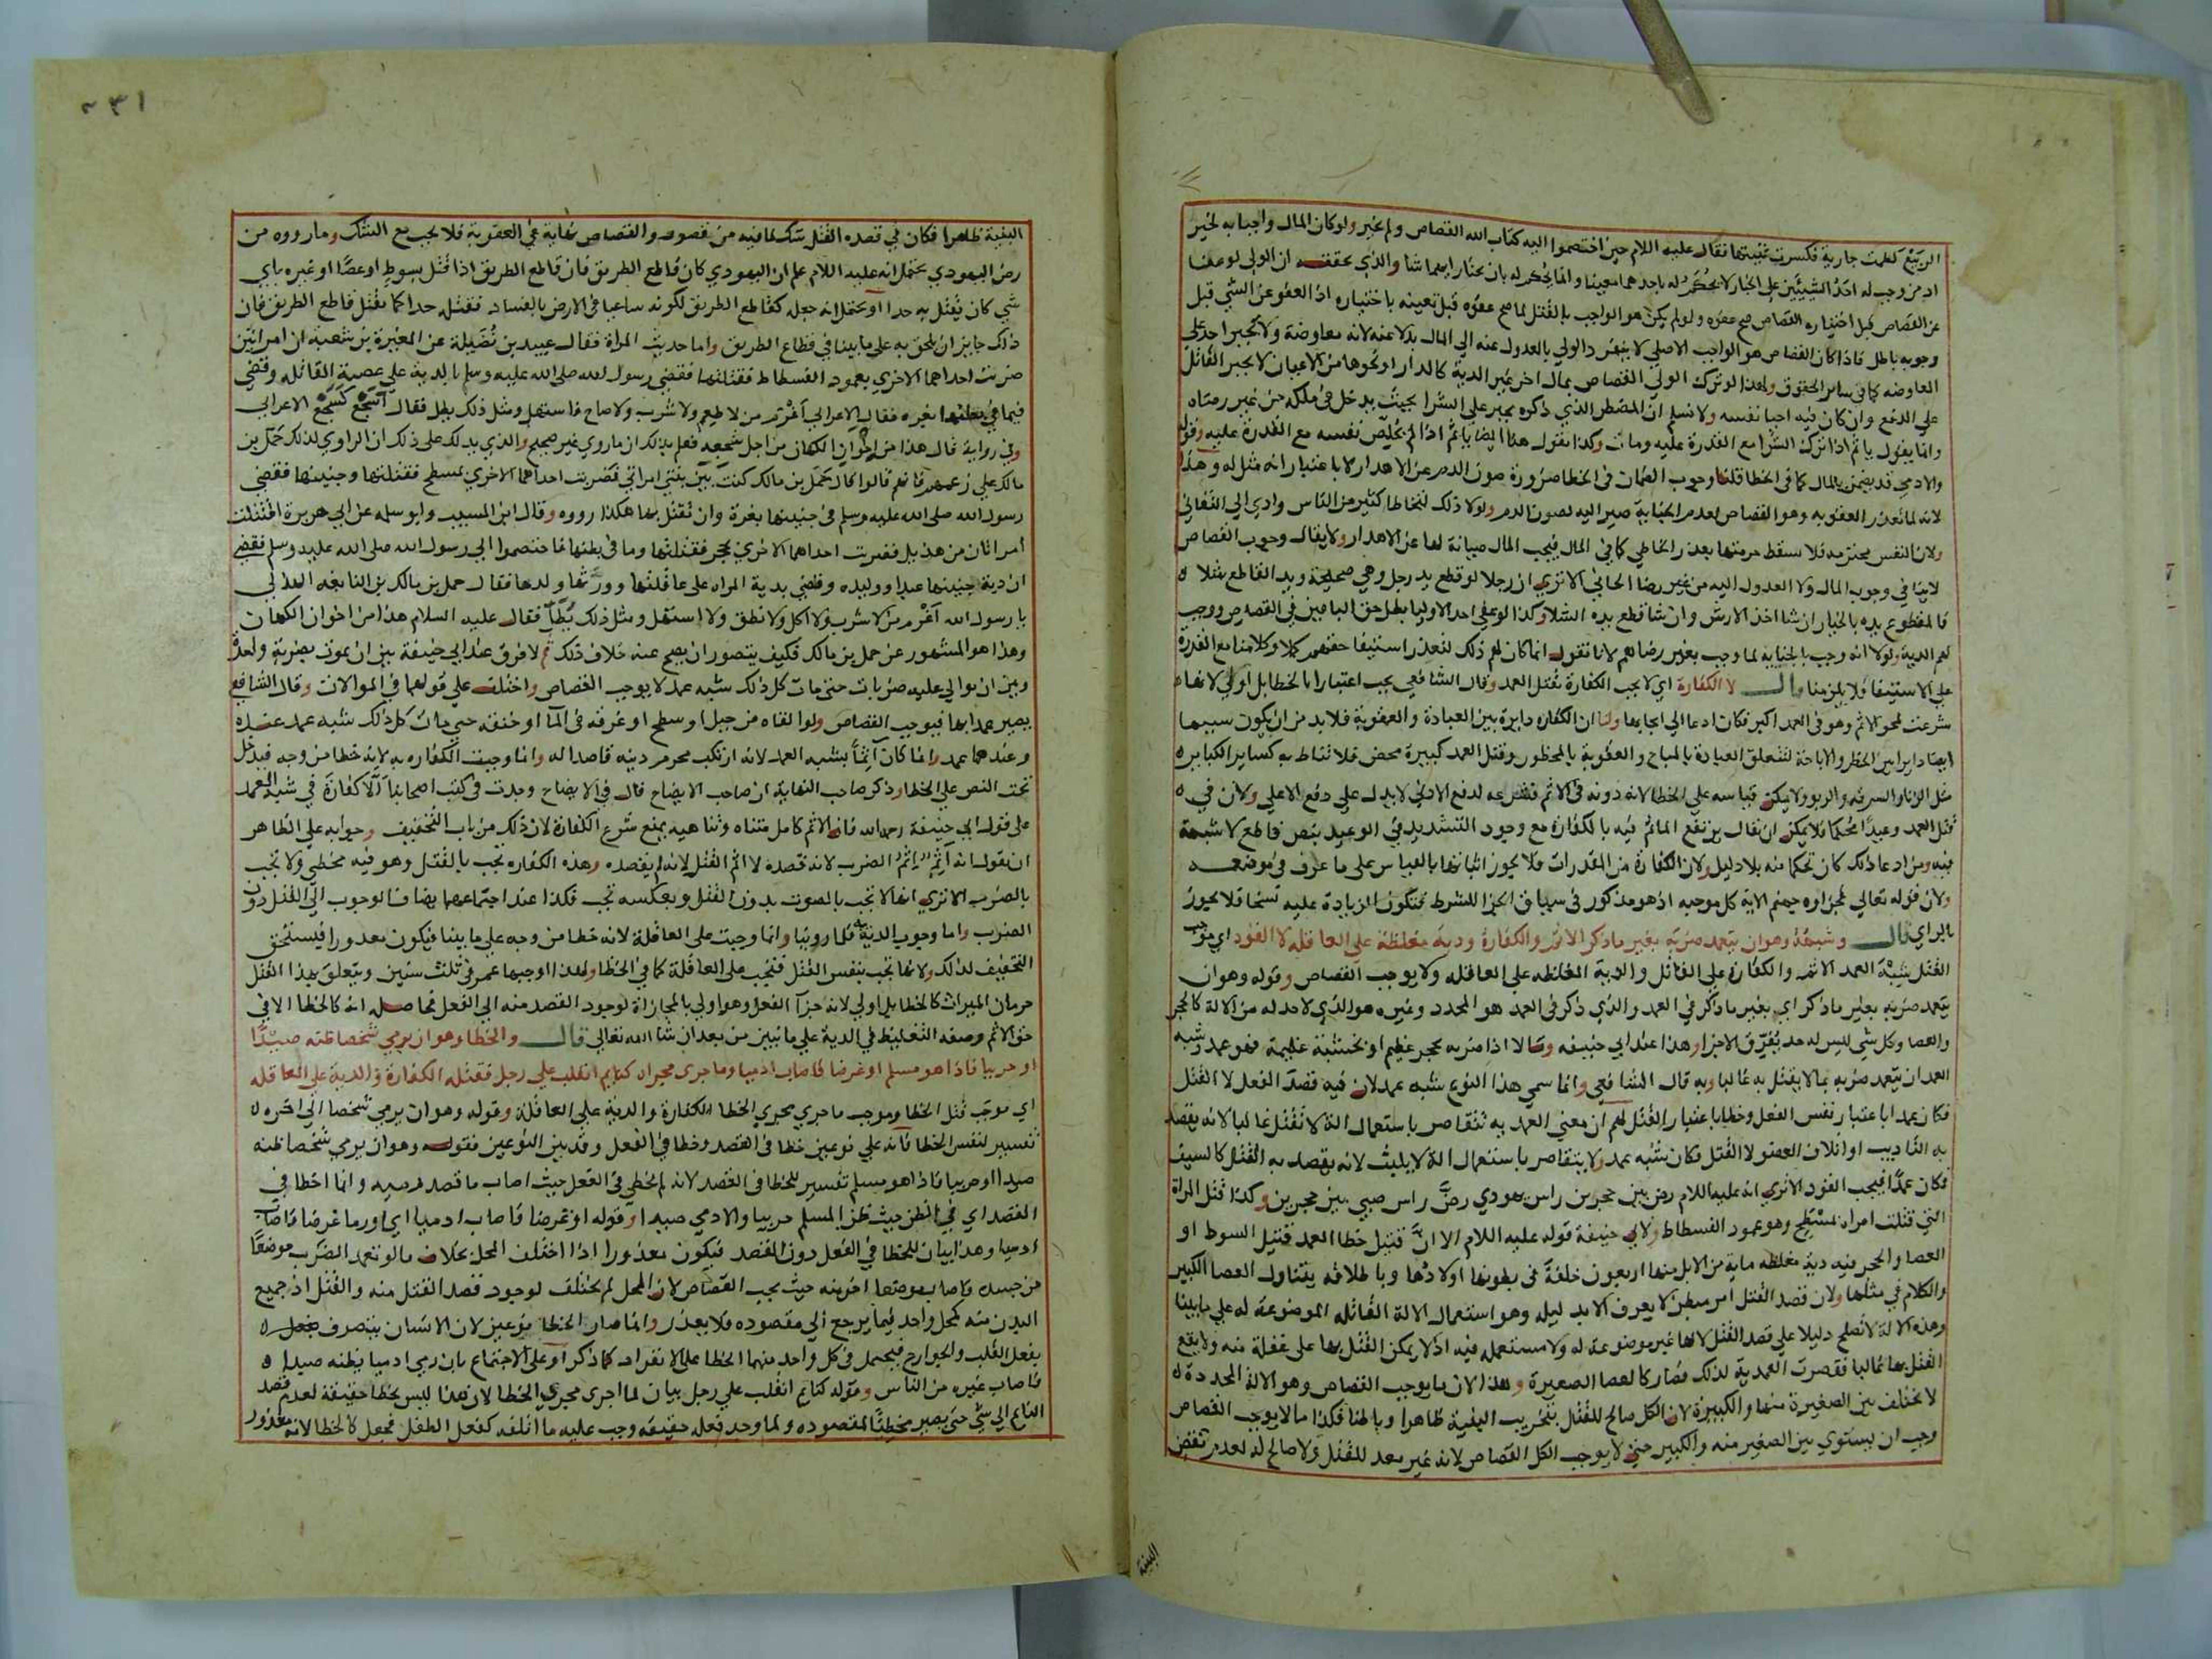 الربيع لطمت جارية فكسرت ثنيتها فقال عليه اللام حين اختصموا اليه كتاب الله القصاص ولم يخير ولو كان المال واجبا به لخير
اذ من وجب له احد الشيئين على الخيار لا يحكم له باحدهما معينا وانما يحكم له بان يختار ايهما شا والذي يحققه ان الولي لو عفا
عن القصاص قبل اختياره القصاص صح عفوه ولو لم يكن هو الواجب بالقتل لما صح عفوه قبل تعيينه باختياره اذ العفو عن الشي قبل
وجوبه باطل فاذا كان القصاص هو الواجب الاصلي لا ينفرد الولي بالعدول عنه الي المال بدلا عنه لانه معاوضة ولا يجبر احد على
المعاوضه كما في ساير الحقوق ولهذا لو ترك الولي القصاص بمال اخر غير الدية كالدار او نحوها من الاعيان لا يجبر القاتل
علي الدفع وان كان فيه احيا نفسه ولا نسلم ان المضطر الذي ذكره يجبر علي الشرا بحيث يدخل في ملكه من غير رضاه
وانما يقول ياثم اذا ترك الشرا مع القدرة عليه ومات وكذا نقول هنا ايضا ياثم اذا لم يخلص نفسه مع القدرة عليه وقوله
والادمي قد يضمن بالمال كما في الخطا قلنا وجوب الضمان في الخطا ضرورة صون الدم عن الاهدار لا باعتبار انه مثل له وهذا
لانه لما تعذر العقوبه وهو القصاص لعدم الجناية صير اليه لصون الدم ولولا ذلك لتخاطا كثير من الناس وادي الي التفاني
ولان النفس محترمه فلا تسقط حرمتها بعذر الخاطي كما في المال فيجب المال صيانة لها عن الاهدار ولا يقال وجوب القصاص
لا ينافي وجوب المال ولا العدول اليه من غير رضا الجاني الا تري ان رجلا لو قطع يد رجل وهي صحيحة ويد القاطع شلا
فالمقطوع يده بالخيار ان شا اخذ الارش وان شا قطع يده الشلا وكذا لو عفي احد الاوليا بطل حق الباقين في القصاص ووجب
لهم الدية ولولا انه وجب بالجنايه لما وجب بغير رضاهم لانا نقول انما كان لهم ذلك لتعذر استيفا حقهم كملا وكلامنا مع القدرة
علي الاستيفا فلا يلزمنا قال لا الكفارة اي لا يجب الكفارة بقتل العمد وقال الشافعي يجب اعتبارا بالخطا بل اولي لانها
شرعت لمحو الاثم وهو في العمد اكبر فكان ادعا الي ايجابها ولنا ان الكفاره دايرة بين العبادة والعقوبة فلا بد من ان يكون سببها
ايضا دايرا بين الحظر والاباحة لتتعلق العبادة بالمباح والعقوبة بالمحظور وقتل العمد كبيرة محض فلا تناط به كساير الكبايره
مثل الزنا والسرقه والربو ولا يمكن قياسه علي الخطا لانه دونه في الاثم فشرعه لدفع الادني لا يدل علي دفع الاعلي ولان في
قتل العمد وعيدا محكما فلا يمكن ان نقال يرتفع الماثم فيه بالكفارة مع وجود التشديد في الوعيد بنص قاطع لا شبهة
فيه ومن ادعا ذلك كان تحكما منه بلا دليل ولان الكفارة من المقدرات فلا يجوز اثباتها بالقياس علي ما عرف في موضعه
ولان قوله تعالي فجزاوه جهنم الاية كل موجبه اذ هو مذكور في سياق الجزا للشرط فتكون الزيادة عليه نسخا فلا يجوز
بالراي قال وشبهه وهو ان يتعمد ضربه بغير ما ذكر الاثم والكفارة ودية مغلظة على العاقله لا القود اي موجب
القتل شبه العمد الاثم والكفارة علي القاتل والدية المغلظه علي العاقله ولا يوجب القصاص وقوله وهو ان
يتعمد ضربه بغير ما ذكر اي بغير ما ذكر في العمد والذي ذكر في العمد هو المحدد وغيره هو الذي لا حد له من الالة كالحجر
والعصا وكل شي ليس له حد يفرق الاجزا وهذا عند ابي حنيفه وقالا اذا ضربه بحجر عظيم او بخشبة عظيمة فهو عمد وشبه
العمد ان يتعمد ضربه بما لا يقتل به غالبا وبه قال الشافعي وانما سمي هذا النوع شبه عمد لان فيه قصد الفعل لا القتل
فكان عمدا باعتبار نفس الفعل وخطا باعتبار القتل لهم ان معني العمد به تتقاصر باستعمال الة لا تقتل غالبا لانه يقصد
به التاديب او اتلاف العضو لا القتل فكان شبه عمد ولا يتقاصر باستعمال الة لا يلبث لانه يقصد به القتل كالسيف
فكان عمدا فيجب القود الاتري انه عليه اللام رض بين حجرين راس يهودي رض راس صبي بين حجرين وكذا قتل المراة
التي قتلت امراة بمسطح وهو عمود الفسطاط ولابي حنيفة قوله عليه اللام الا ان قتيل خطا العمد قتيل السوط او
العصا والحجر فيه دية مغلظه ماية من الابل منها اربعون خلفة في بطونها اولادها وباطلاقه يتناول العصا الكبير
والكلام في مثلها ولان قصد القتل امر مبطن لا يعرف الا بدليله وهو استعمال الالة القاتله الموضوعة له علي ما بينا
وهذه الالة لا تصلح دليلا علي قصد القتل لانها غير موضوعة له ولا مستعمله فيه اذ لا يمكن القتل بها علي غفلة منه ولا يقع
القتل بها غالبا فقصرت العمدية لذلك فصار كالعصا الصغيرة وهذا لان ما يوجب القصاص وهو الالة المحددة
لا يختلف بين الصغيرة منها والكبيرة لان الكل صالح للقتل بتخريب البنية ظاهرا وباطنا فكذا ما لا يوجب القصاص
وجب ان يستوي بين الصغير منه والكبير حتي لا يوجب الكل القصاص لانه غير معد للقتل ولا صالح له لعدم نقض
البنية
٢٣١
البنية ظاهرا فكان في قصده القتل شك لما فيه من قصور والقصاص نهاية في العقوبة فلا يجب مع الشك وما رووه من
رض اليهودي يحتمل انه عليه اللام علم ان اليهودي كان قاطع الطريق فان قاطع الطريق اذا قتل بسوط او عصا او غيره باي
شي كان يقتل به حدا او يحتمل انه جعله كقاطع الطريق لكونه ساعيا في الارض بالفساد فقتله حدا كما يقتل قاطع الطريق فان
ذلك جايز ان يلحق به علي ما بينا في قطاع الطريق واما حديث المراة فقال عبيد بن نضيلة عن المغيرة بن شعبة ان امراتين
ضربت احداهما الاخري بعمود الفسطاط فقتلتها فقضي رسول الله صلى الله عليه وسلم بالدية علي عصبة القاتله وقضي
فيما في بطنها بغره فقال الاعرابي اغرم من لا طعم ولا شرب ولا صاح فاستهل ومثل ذلك يطل فقال أسجع كسجع الاعرابي
وفي رواية قال هذا من اخوان الكهان من اجل سجعه فعلم بذلك ان ما روي غير صحيح والذي يدلك على ذلك ان الراوي لذلك حمل بن
مالك علي زعمهم فانهم قالوا قال حمل بن مالك كنت بين بيتي امراتي فضربت احداهما الاخري بمسطح فقتلتها وجنينها فقضي
رسول الله صلى الله عليه وسلم في جنينها بغرة وان تقتل بها هكذا رووه وقال ابن المسيب وابو سلمه عن ابي هريرة اقتتلت
امراتان من هذيل فضربت احداهما الاخري بحجر فقتلتها وما في بطنها فاختصموا الي رسول الله صلى الله عليه وسلم فقضي
ان دية جنينها عبد او وليده وقضي بدية المراه على عاقلتها وورثها ولدها فقال حمل بن مالك بن النابغه الهذلي
يا رسول الله اغرم من لا شرب ولا اكل ولا نطق ولا استهل ومثل ذلك يطل فقال عليه السلام هذا من اخوان الكهان
وهذا هو المشهور عن حمل بن مالك فكيف يتصور ان يصح عنه خلاف ذلك ثم لا فرق عند ابي حنيفة بين ان يموت بضربة واحدة
وبين ان يوالي عليه ضربات حتي مات كل ذلك شبه عمد لا يوجب القصاص واختلف علي قولهما في الموالات وقال الشافعي
يصير عمدا بها فيوجب القصاص ولو القاه من جبل او سطح او غرقه في المآ او خنقه حتي مات كل ذلك شبه عمد عنده
وعندهما عمد وانما كان آثما بشبه العمد لانه ارتكب محرم دينه قاصدا له وانما وجبت الكفاره به لانه خطا من وجه فيدخل
تحت النص علي الخطا وذكر صاحب النهاية ان صاحب الايضاح قال في الايضاح وجدت في كتب اصحابنا ألا كفارة في شبه العمد
على قول ابي حنيفة رحمه الله فان الاثم كامل متناه وتناهيه يمنع شرع الكفارة لان ذلك من باب التخفيف وجوابه علي الظاهر
ان يقول انه آثم اثم الضرب لانه قصده لا اثم القتل لانه لم يقصده وهذه الكفاره تجب بالقتل وهو فيه مخطي ولا تجب
بالضرب الا تري انها لا تجب بالضرب بدون القتل وبعكسه تجب فكذا عند اجتماعهما يضاف الوجوب الي القتل دون
الضرب واما وجوب الدية فلما روينا وانما وجبت على العاقلة لانه خطا من وجه علي ما بينا فيكون معذورا فيستحق
التخفيف لذلك ولانها تجب بنفس القتل فتجب على العاقلة كما في الخطا ولهذا اوجبها عمر في ثلث سنين ويتعلق بهذا القتل
حرمان الميراث كالخطا بل اولي لانه جزآ الفعل وهو اولي بالمجازاة لوجود القصد منه الي الفعل فحاصله انه كالخطا الا في
حق الاثم وصفه التغليظ في الدية علي ما نبين من بعد ان شا الله تعالي قال والخطا وهو ان يرمي شخصا ظنه صيدا
او حربيا فاذا هو مسلم او غرضا فاصاب ادميا وما جري مجراه كنايم انقلب علي رجل فقتله الكفارة والدية على العاقله
اي موجب قتل الخطا وموجب ما جري مجري الخطا الكفارة والدية علي العاقلة وقوله وهو ان يرمي شخصا الي اخره
تفسير لنفس الخطا فانه علي نوعين خطا في القصد وخطا في الفعل وقد بين النوعين فقوله وهو ان يرمي شخصا ظنه
صيدا او حربيا فاذا هو مسلم تفسير للخطا في القصد لانه لم يخطي في الفعل حيث اصاب ما قصد رميه وانما اخطا في
القصد اي في الظن حيث ظن المسلم حربيا والادمي صيدا وقوله او غرضا فاصاب ادميا اي او رما غرضا فاصاب
ادميا وهذا بيان للخطا في الفعل دون القصد فيكون معذورا اذا اختلف المحل بخلاف ما لو تعمد الضرب موضعا
من جسده فاصاب موضعا اخر منه حيث يجب القصاص لان المحل لم يختلف لوجود قصد القتل منه والقتل اذ جميع
البدن منه كمحل واحد فيما يرجع الي مقصوده فلا يعذر وانما صار الخطا نوعين لان الانسان يتصرف بفعل
بفعل القلب والجوارح فيحتمل في كل واحد منهما الخطا على الانفراد كما ذكر او على الاجتماع بان رمي ادميا يظنه صيدا
فاصاب غيره من الناس وقوله كنايم انقلب علي رجل بيان لما اجري مجري الخطا لان هذا ليس بخطا حقيقة لعدم قصد
النايم الي شي حتي يصير مخطيا لمقصوده ولما وجد فعله حقيقه وجب عليه ما اتلفه كفعل الطفل فجعل كالخطا لانه معذور